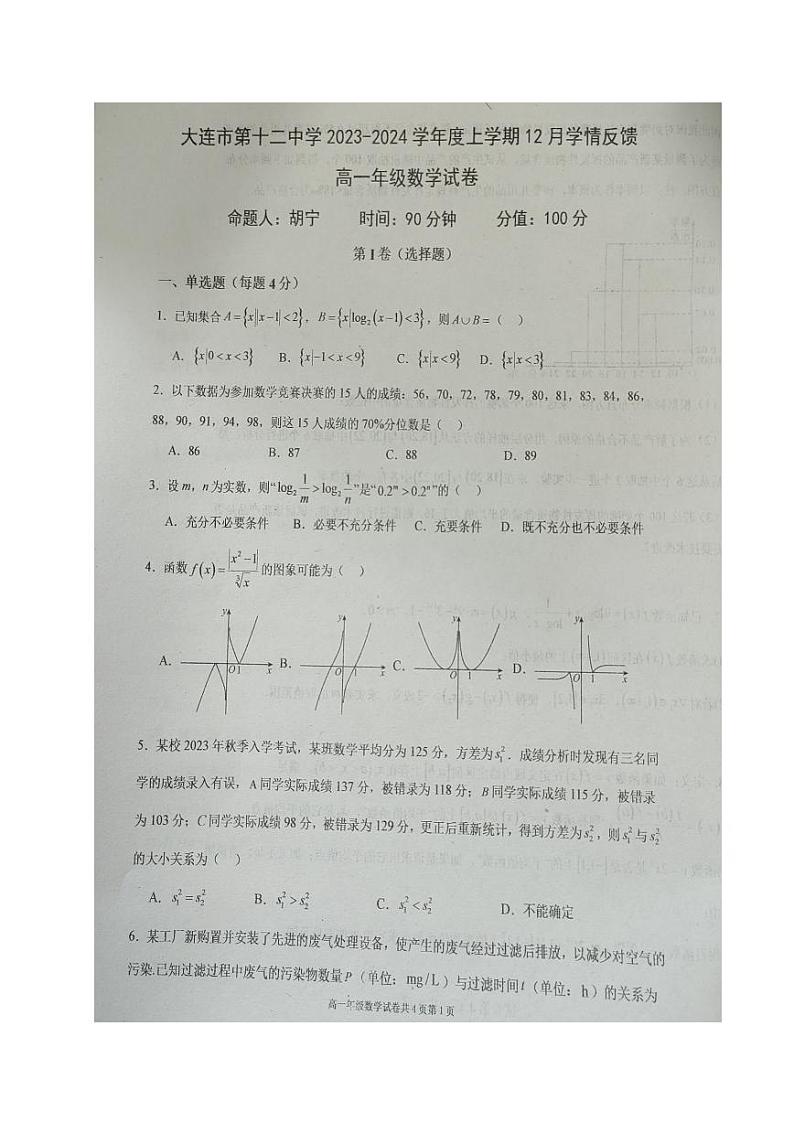 大连市第十二中学 2023-2024 学年度上学期 12 月学情反馈
高一年级数学试卷
命题人：胡宁 时间：90 分钟 分值：100 分
第 I 卷（选择题）
一、单选题（每题 4 分）
1．已知集合 A={x||x-1|<2}，B={x|log₂(x-1)<3}，则 A∪B=（ ）
A．{x|0<x<3} B．{x|-1<x<9} C．{x|x<9} D．{x|x<3}
2．以下数据为参加数学竞赛决赛的 15 人的成绩：56，70，72，78，79，80，81，83，84，86，
88，90，91，94，98，则这 15 人成绩的 70%分位数是（ ）
A．86 B．87 C．88 D．89
3．设 m，n 为实数，则“log₂ 1/m > log₂ 1/n”是“0.2ᵐ>0.2ⁿ”的（ ）
A．充分不必要条件 B．必要不充分条件 C．充要条件 D．既不充分也不必要条件
4．函数 f(x)=|x²-1|/∛x 的图象可能为（ ）
A． y O 1 x B． y O 1 x C． y O 1 x D． y O 1 x
5．某校 2023 年秋季入学考试，某班数学平均分为 125 分，方差为 s₁²．成绩分析时发现有三名同
学的成绩录入有误，A 同学实际成绩 137 分，被错录为 118 分；B 同学实际成绩 115 分，被错录
为 103 分；C 同学实际成绩 98 分，被错录为 129 分，更正后重新统计，得到方差为 s₂²，则 s₁² 与 s₂²
的大小关系为（ ）
A．s₁²=s₂² B．s₁²>s₂² C．s₁²<s₂² D．不能确定
6．某工厂新购置并安装了先进的废气处理设备，使产生的废气经过过滤后排放，以减少对空气的
污染.已知过滤过程中废气的污染物数量 P（单位：mg/L）与过滤时间 t（单位：h）的关系为
高一年级数学试卷共 4 页第 1 页